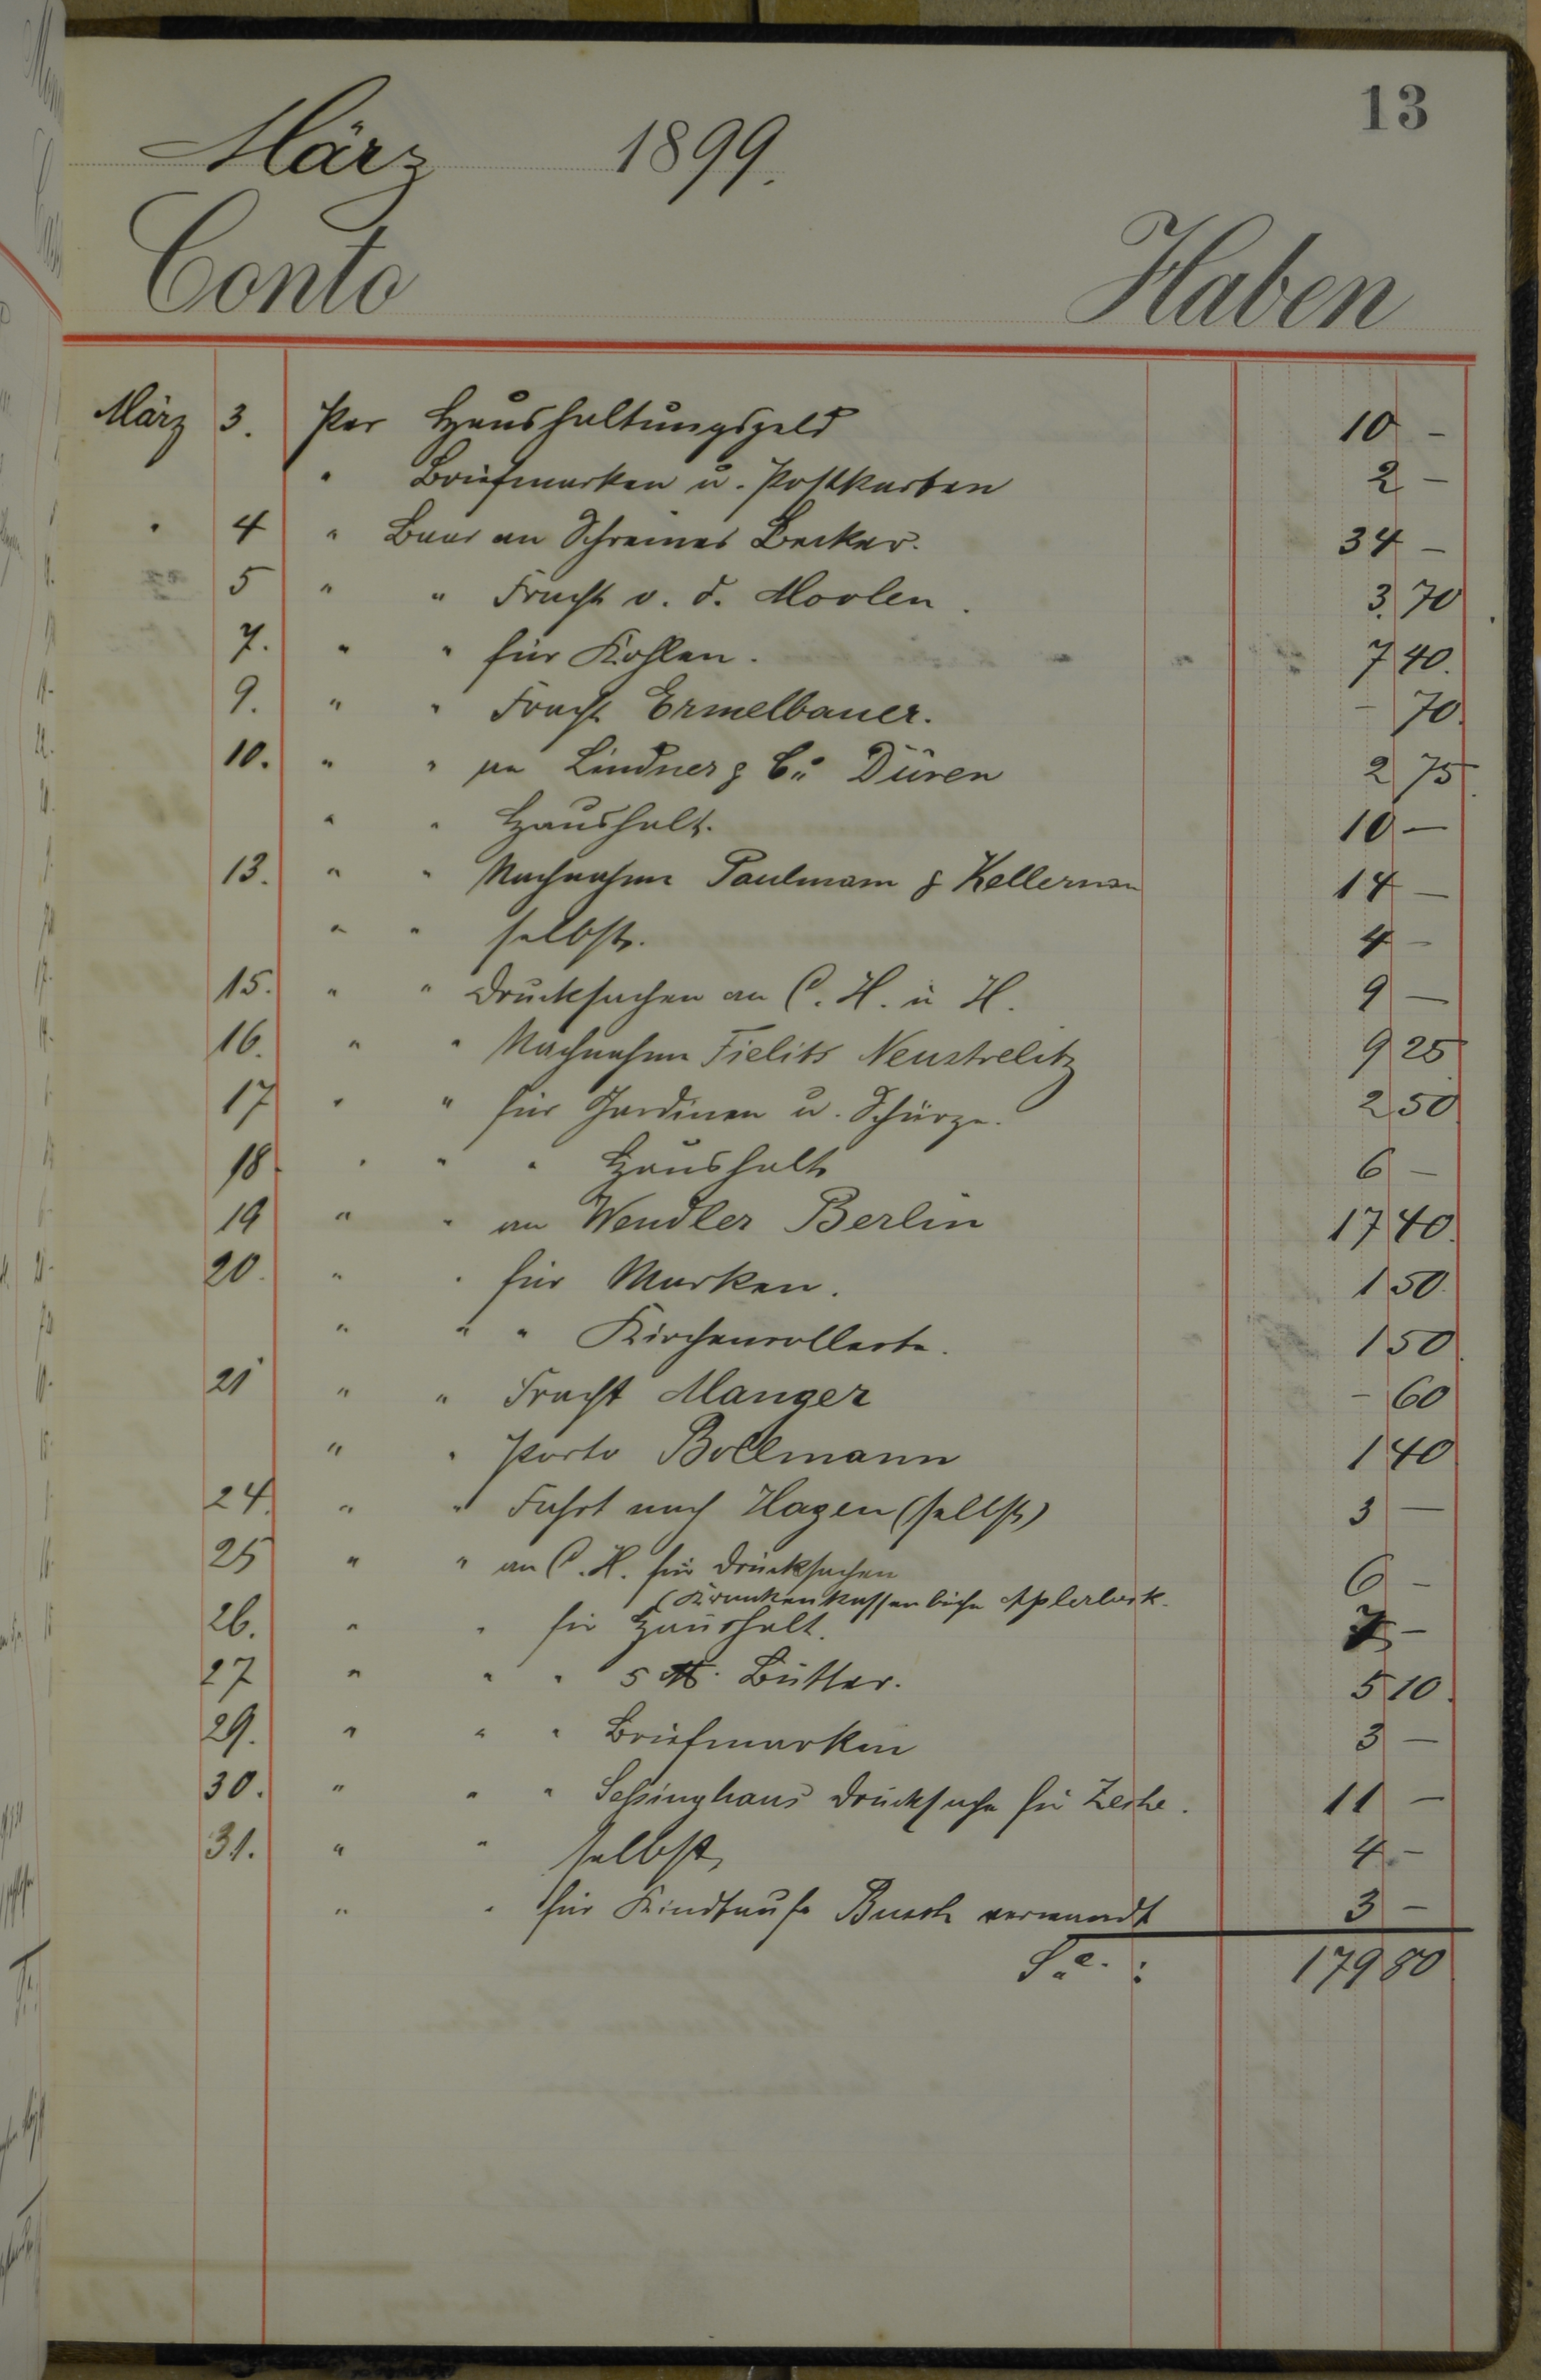 13
März 1899.
Conto Haben
März 3. Per Haushaltungsgeld 10 -
" Briefmarken u. Postkarten 2 -
" 4 " Baar an Schreiner Becker. 34 -
5 " " Fracht v. d. Moolen. 3,70
7. " " für Kohlen. 7 40.
9. " " Fracht Ermelbauer. - 70.
10. " " an Lindner & Cie Düren 2 75
" " Haushalt. 10 -
13. " " Nachnahme Paulmann & Kellerman 14 -
" " selbst. 4 -
15. " " Drucksachen an C. H. u H. 9 -
16. " " Nachnahme Fielits Neustrelitz 9 25
17 " " für Gardinen u. Schürze. 2 50
18 " " " Haushalt 6 -
19 " " an Wendler Berlin 17 40.
20. " " für Marken. 1 50.
" " " Kirchencollecte. 1 50.
21 " " Fracht Manger - 60
" " Porto Bollmann 1 40
24. " " Fahrt nach Hagen (selbst) 3 -
25 " " an C. H. für Drucksachen 6 -
(Krankenkassenbücher Aplerbeck.
26. " " für Haushalt. 7 -
27 " " " 5 ℔. Butter. 5 10.
29. " " " Briefmarken 3 -
30. " " " Sessinghaus Drucksache für Zeche. 11 -
31. " " selbst, 4 -
" " für Kindtaufe Busch verwandt 3 -
Sa. : 179 80